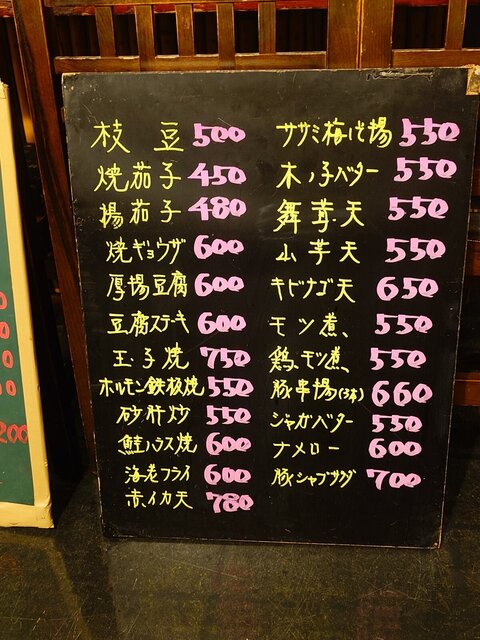 枝豆 500
焼茄子 450
揚茄子 480
焼ギョウザ 600
厚揚豆腐 600
豆腐ステーキ 600
玉子焼 750
ホルモン鉄板焼 550
砂肝炒 550
鮭ハラス焼 600
海老フライ 600
赤イカ天 780
ササミ梅しそ揚 550
木ノ子バター 550
舞茸天 550
山芋天 550
キビナゴ天 650
モツ煮 550
鶏モツ煮 550
豚串揚(3本) 660
ジャガバター 550
ナメロー 600
豚シャブサラダ 700